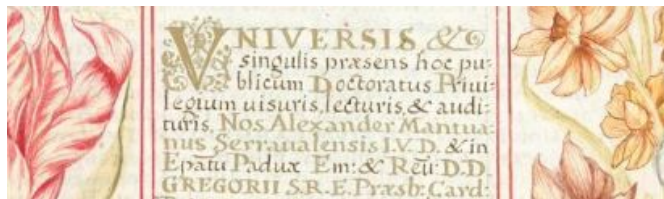 VNIVERSIS, &
singulis præsens hoc pu-
blicum Doctoratus Priui-
legium uisuris, lecturis, & audi-
turis, Nos Alexander Mantua-
nus Serraualensis I.V.D. & in
Epatu Paduæ Em: & Reu: D.D.
GREGORII S.R.E. Præsb: Card: